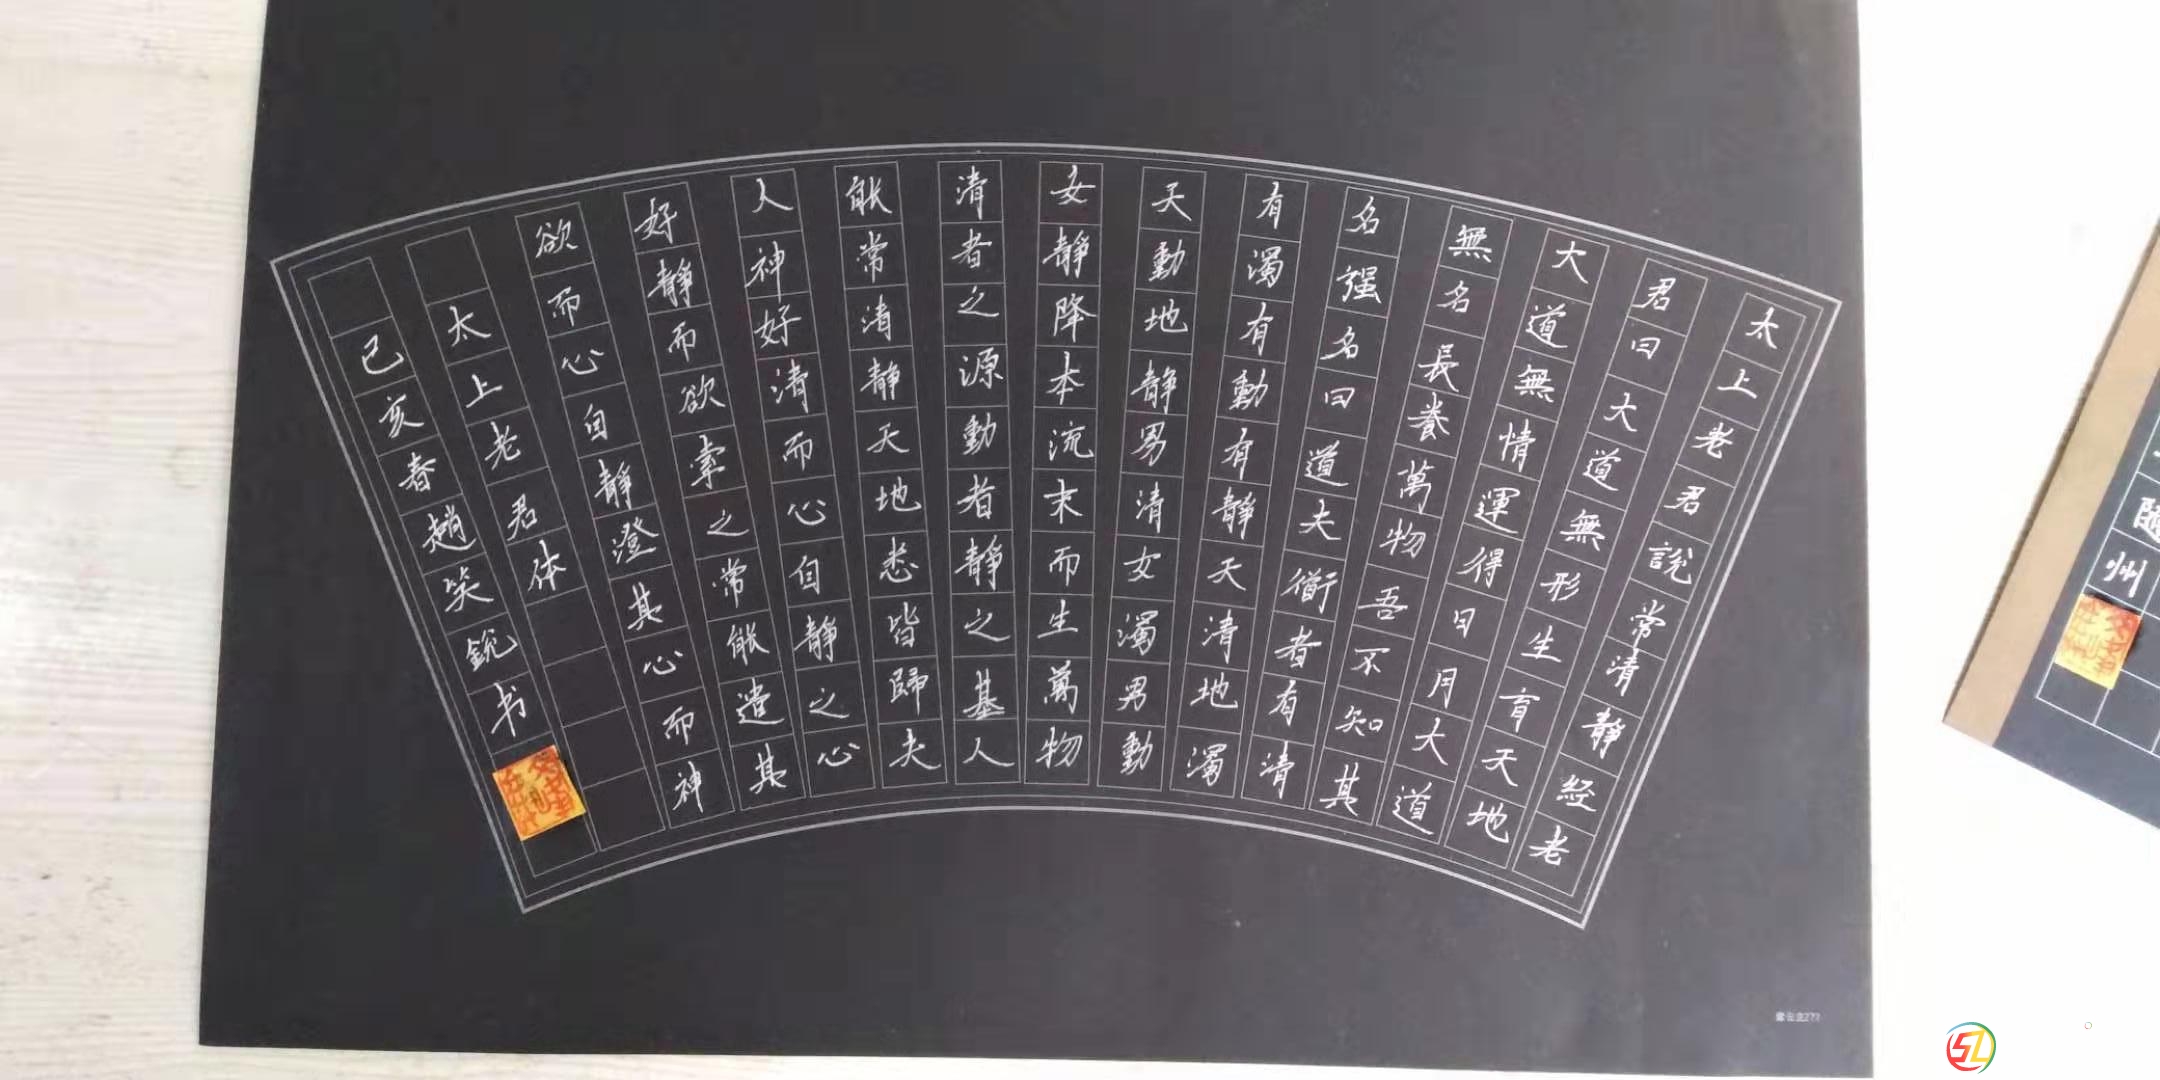 太上老君說常清靜經老
君曰大道無形生育天地
大道無情運得日月大道
無名長養萬物吾不知其
名强名曰道夫衜者有清
有濁有動有靜天清地濁
天動地静男清女濁男動
女靜降本流末而生萬物
清者之源動者靜之基人
能常清静天地悉皆歸夫
人神好清而心自靜之心
好靜而欲索之常能遣其
欲而心自靜澄其心而神
太上老君体
己亥春趙笑銳书
州
SL